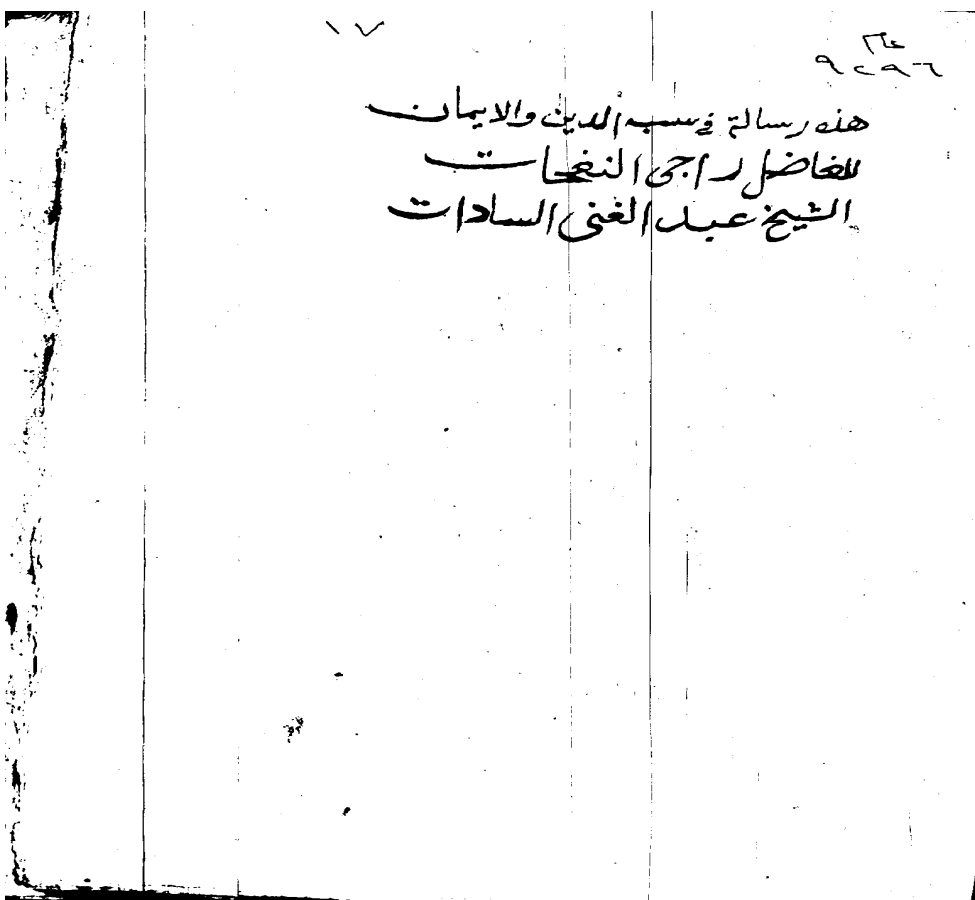 ١٧
٩٢٩٦
هذه رسالة في سب الدين والايمان
للفاضل راجى النفحات
الشيخ عبد الغنى السادات